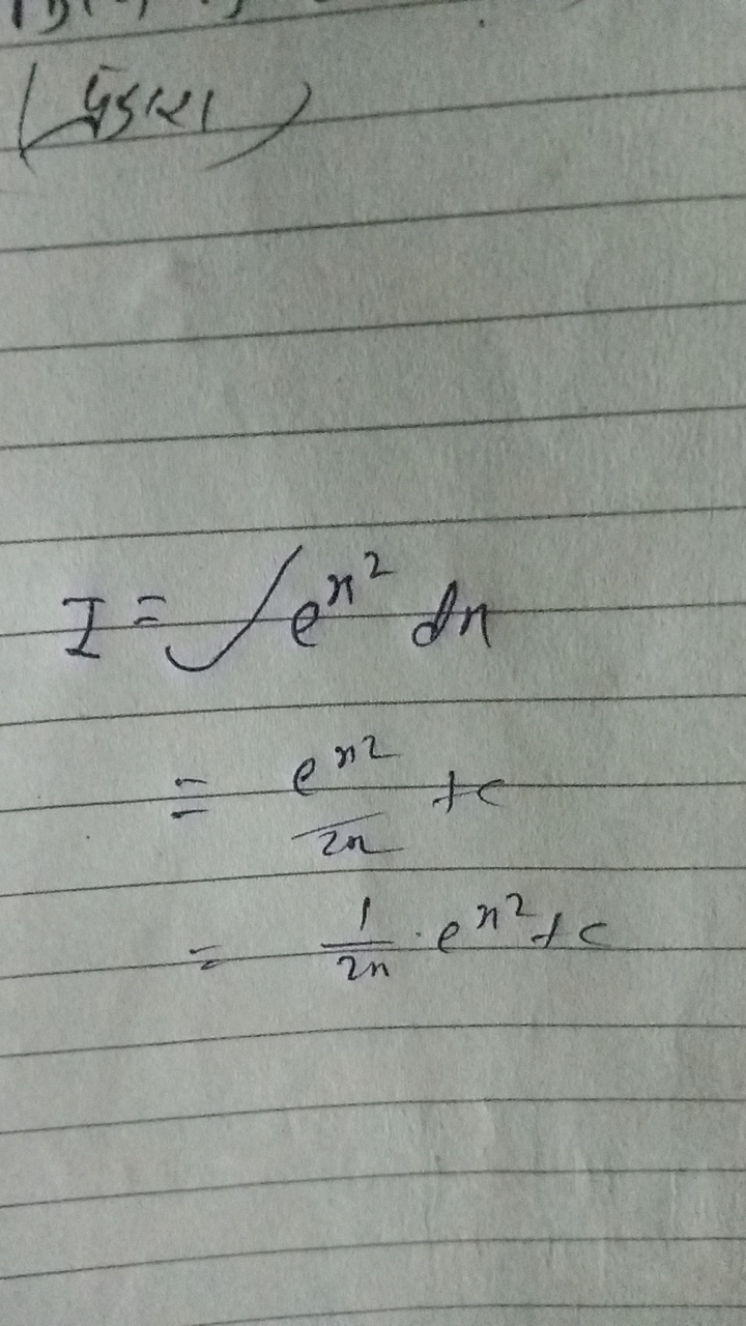 I = ∫ e^{x^2} dx
= e^{x^2} / 2x + c
= 1/2x · e^{x^2} + c